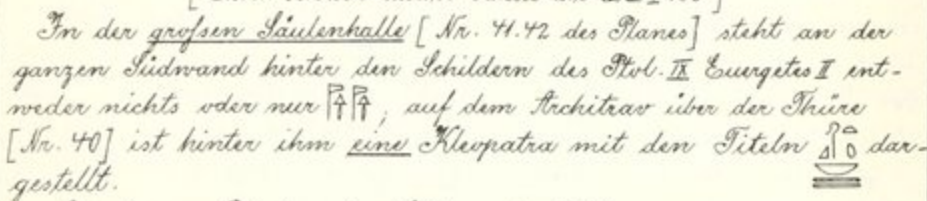 In der großen Säulenhalle [Nr. 41.42 des Planes] steht an der
ganzen Südwand hinter den Schildern des Ptol. IX Euergetes II ent-
weder nichts oder nur 𓊹𓊹, auf dem Architrav über der Thüre
[Nr. 40] ist hinter ihm eine Kleopatra mit den Titeln dar-
gestellt.